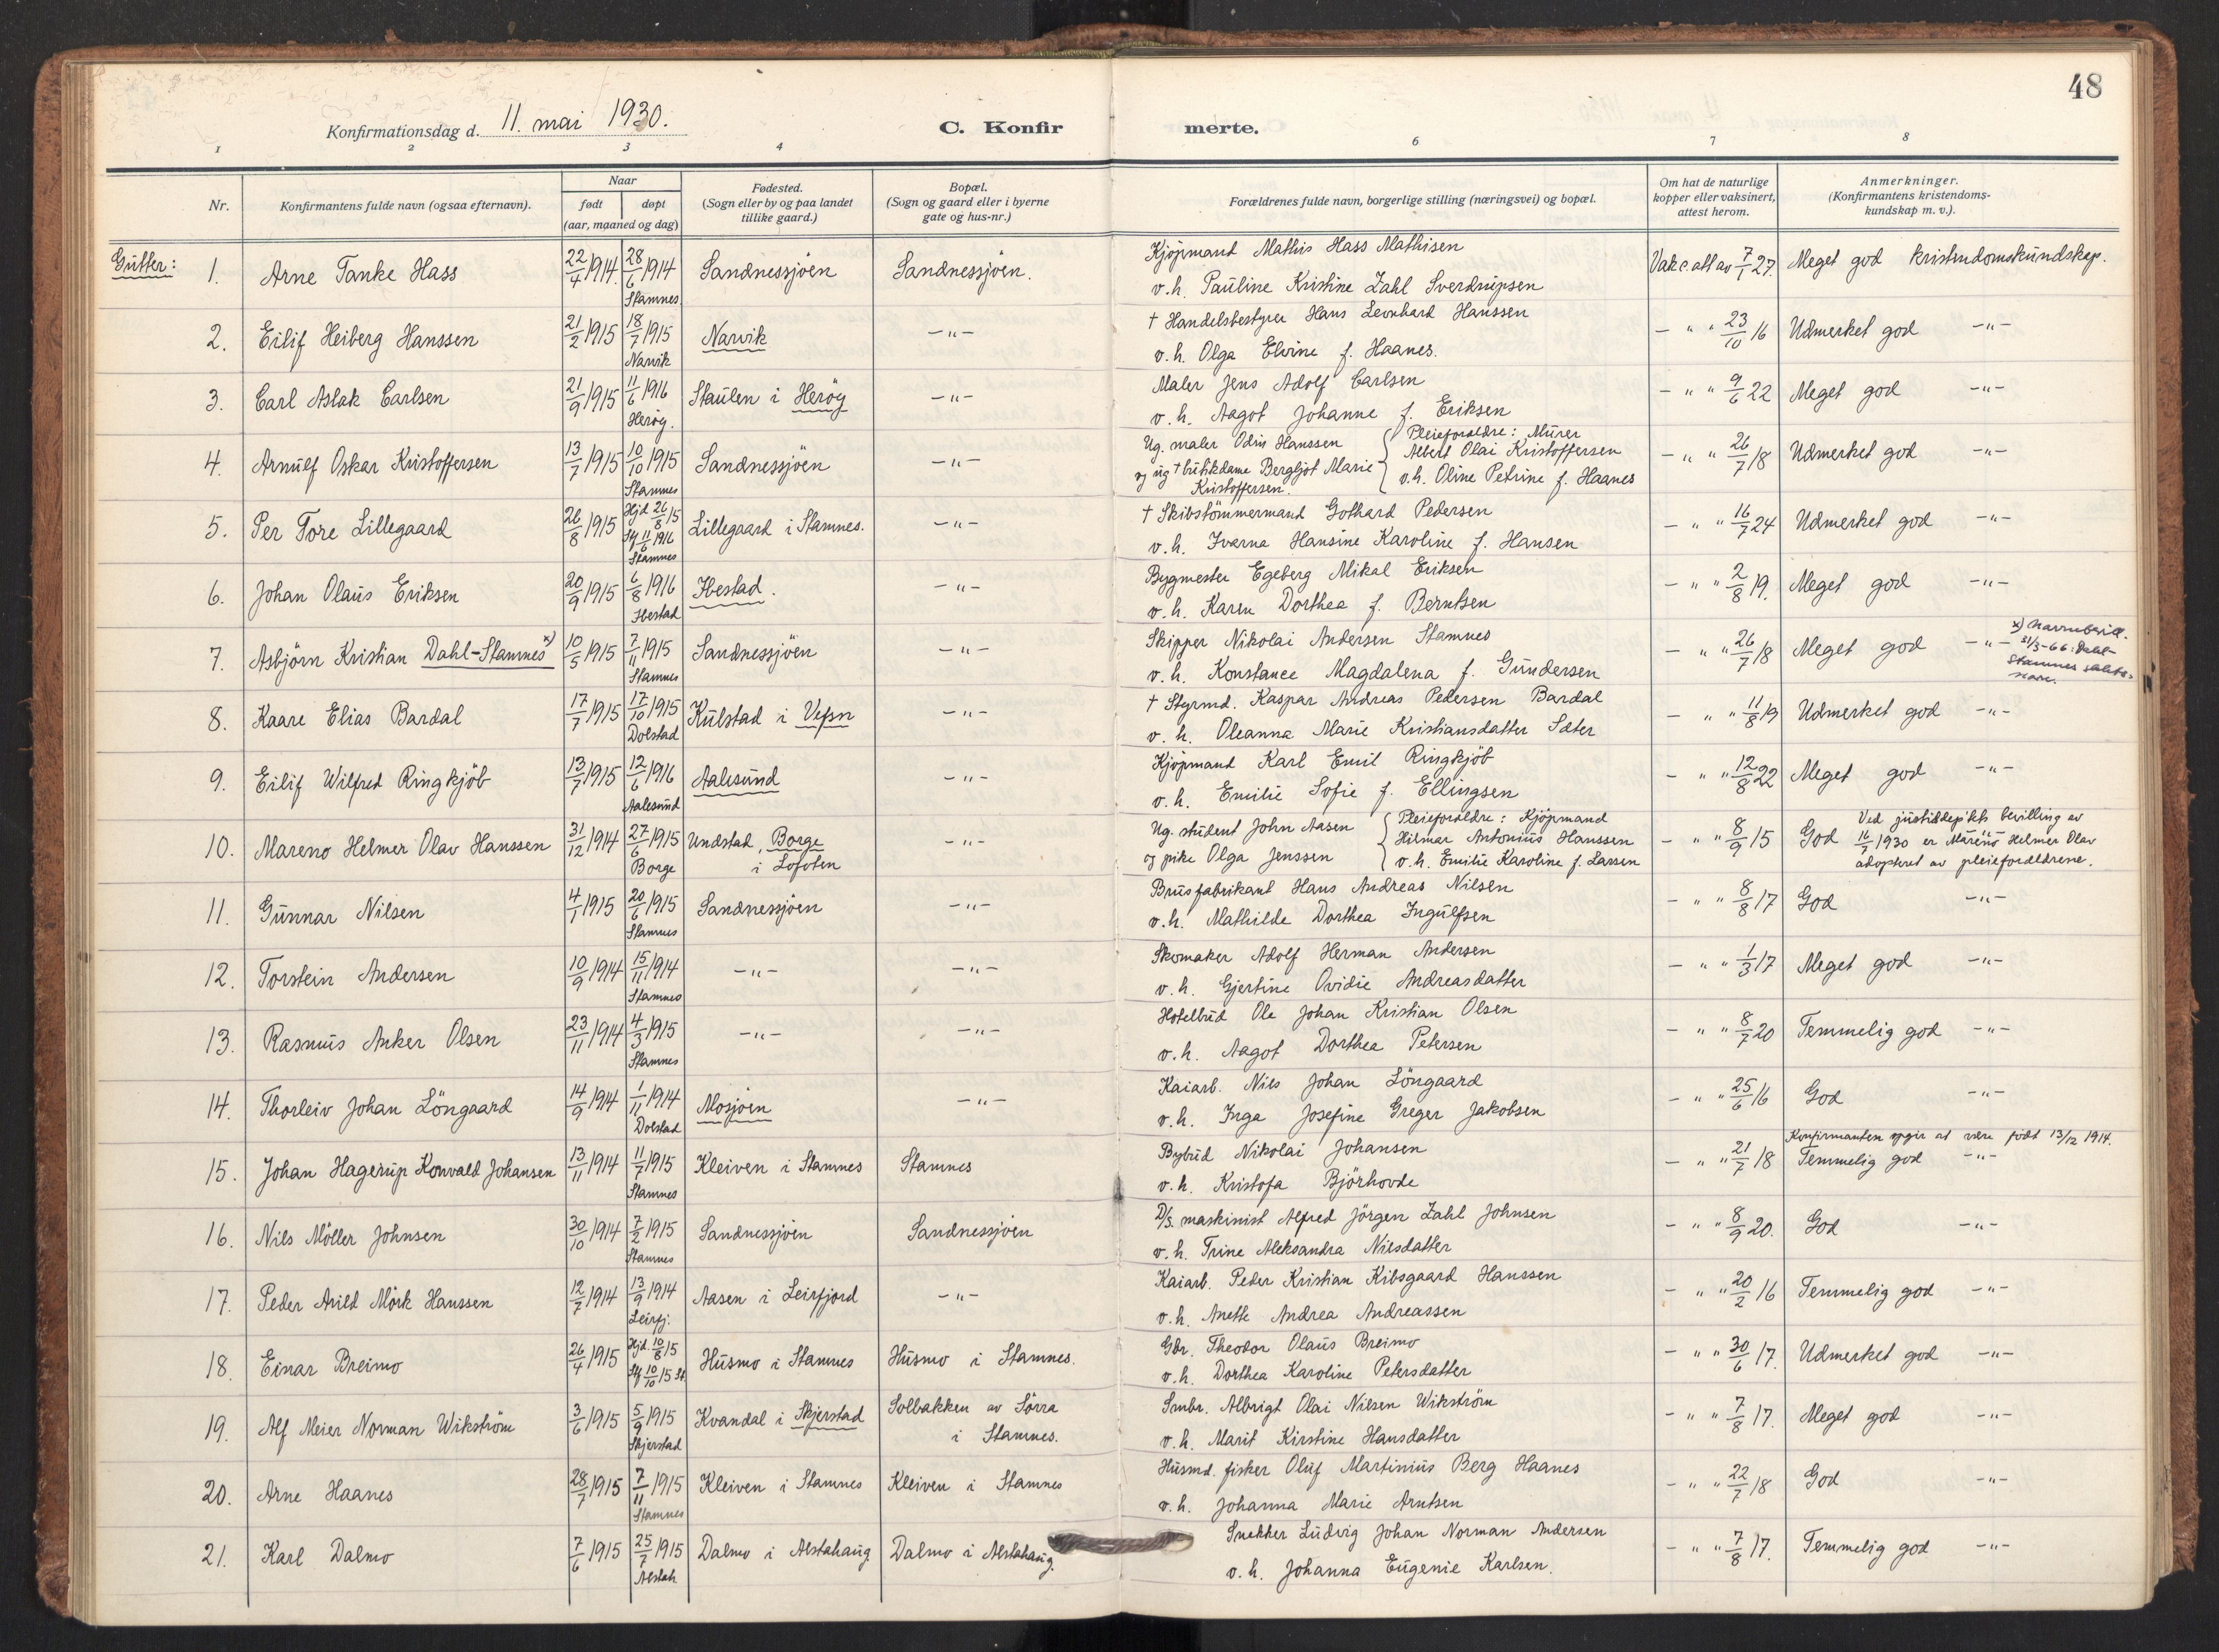 48
Konfirmationsdag d. 11. mai 1930.
C. Konfirmerte.
1 2 3 4 6 7 8
Nr.
Konfirmantens fulde navn (ogsaa efternavn).
Naar
født døpt
(aar, maaned og dag)
Fødested.
(Sogn eller by og paa landet
tillike gaard.)
Bopæl.
(Sogn og gaard eller i byerne
gate og hus-nr.)
Forældrenes fulde navn, borgerlige stilling (næringsvei) og bopæl.
Om hat de naturlige
kopper eller vaksinert,
attest herom.
Anmerkninger.
(Konfirmantens kristendoms-
kundskap m. v.).
Gutter:
1. Arne Tanke Hass 22/4 1914. 28/6 1914 Sandnessjöen Sandnessjöen. Kjöpmand Mathis Hass Mathisen Vakc att av 7/1 27. Meget god kristendomskundskap.
Stamnes v.h. Pauline Kristine Zahl Sverdrupsen
2. Eilif Heiberg Hanssen 21/2 1915 18/7 1915 Narvik -"- † Handelsbestyrer Hans Leonhard Hanssen - " " 23/10 16 Udmerket god -"-
Narvik v.h. Olga Elvine f. Haanes.
3. Carl Aslak Carlsen 21/9 1915 11/6 1916 Staulen i Heröy -"- Maler Jens Adolf Carlsen - " " 9/6 22 Meget god -"-
Heröy. v.h. Aagot Johanne f. Eriksen
4. Arnulf Oskar Kristoffersen 13/7 1915 10/10 1915 Sandnessjöen -"- Ug. maler Odin Hanssen { Pleieforældre: Murer - " " 26/7 18 Udmerket god -"-
og ug † butikdame Bergljot Marie Albert Olai Kristoffersen
Stamnes Kristoffersen. v.h. Oline Petrine f. Haanes
5. Per Tore Lillegaard 26/8 1915 Hjd 26/8 15 Lillegaard i Stamnes. -"- † Skibstömmermand Gothard Pedersen - " " 16/7 24 Udmerket god -"-
Stf 11/6 1916 Stamnes v.h. Ivarna Hansine Karoline f. Hansen
6. Johan Olaus Eriksen 20/9 1915 6/8 1916 Ibestad. -"- Bygmester Egeberg Mikal Eriksen - " " 2/8 19. Meget god -"-
Ibestad v.h. Karen Dorthea f. Berntsen
7. Asbjörn Kristian Dahl-Stamnes x) 10/5 1915 7/11 1915 Sandnessjöen -"- Skipper Nikolai Andersen Stamnes - " " 26/7 18 Meget god -"- x) Navnebevill. 31/3-66: Dahl-Stamnes
Stamnes v.h. Konstance Magdalena f. Gundersen
8. Kaare Elias Bardal 17/7 1915 17/10 1915 Kulstad i Vefsn -"- † Styrmd. Kaspar Andreas Pedersen Bardal - " " 11/8 19 Udmerket god -"-
Dolstad v.h. Oleanna Marie Kristiansdatter Sæter
9. Eilif Wilfred Ringkjöb 13/7 1915 12/6 1916 Aalesund -"- Kjöpmand Karl Emil Ringkjöb - " " 12/8 22 Meget god -"-
Aalesund v.h. Emilie Sofie f. Ellingsen
10. Mareno Helmer Olav Hanssen 31/12 1914 27/6 1915 Undstad, Borge -"- Ug. student John Aasen { Pleieforældre: Kjöpmand - " " 8/9 15 God Ved justisdep'kts bevilling av
Borge i Lofoten og pike Olga Jenssen Hilmar Antonius Hanssen 16/7 1930 er Mareno Helmer Olav
v.h. Emilie Karoline f. Larsen adopteret av pleieforældrene.
11. Gunnar Nilsen 4/1 1915 20/6 1915 Sandnessjöen -"- Brusfabrikant Hans Andreas Nilsen - " " 8/8 17 God -"-
Stamnes v.h. Mathilde Dorthea Ingulfsen
12. Torstein Andersen 10/9 1914 15/11 1914 -"- -"- Skomaker Adolf Herman Andersen - " " 1/3 17 Meget god -"-
Stamnes v.h. Gjertine Ovidie Andreasdatter
13. Rasmus Anker Olsen 23/11 1914 4/3 1915 -"- -"- Hotelbud Ole Johan Kristian Olsen - " " 8/7 20 Temmelig god -"-
Stamnes v.h. Aagot Dorthea Petersen
14. Thorleiv Johan Löngaard 14/9 1914 1/11 1914 Mosjöen -"- Kaiarb. Nils Johan Löngaard - " " 25/6 16 God -"-
Dolstad v.h. Inga Josefine Greger Jakobsen
Konfirmanten opgir at være født 13/12 1914.
15. Johan Hagerup Konvald Johansen 13/11 1914 11/7 1915 Kleiven i Stamnes Stamnes Bybud Nikolai Johansen - " " 21/7 18 Temmelig god -"-
Stamnes v.h. Kristofa Björhovde
16. Nils Möller Johnsen 30/10 1914 7/2 1915 Sandnessjöen Sandnessjöen D/S. maskinist Alfred Jörgen Zahl Johnsen - " " 8/9 20. God -"-
Stamnes v.h. Trine Aleksandra Nilsdatter
17. Peder Arild Mörk Hanssen 12/7 1914 13/9 1914 Aasen i Leirfjord -"- Kaiarb. Peder Kristian Kibsgaard Hanssen - " " 20/2 16 Temmelig god -"-
Leirfj. v.h. Anette Andrea Andreassen
18. Einar Breimo 26/4 1915 Hjd. 10/8 15 Husmo i Stamnes Husmo i Stamnes. Gbr. Theodor Olaus Breimo - " " 30/6 17. Udmerket god -"-
Stf 10/10 15 St. v.h. Dorthea Karoline Petersdatter
19. Alf Meier Norman Wikström 3/6 1915 5/9 1915 Kvandal i Skjerstad Solbakken av Sörra Smbr. Albrigt Olai Nilsen Wikström - " " 7/8 17. Meget god -"-
Skjerstad i Stamnes. v.h. Marit Kirstine Hansdatter
20. Arne Haanes 28/7 1915 7/11 1915 Kleiven i Stamnes Kleiven i Stamnes Husmd. fisker Oluf Martinius Berg Haanes - " " 22/7 18 God -"-
Stamnes v.h. Johanna Marie Arntsen
21. Karl Dalmo 7/6 1915 25/7 1915 Dalmo i Alstahaug Dalmo i Alstahaug. Snekker Ludvig Johan Norman Andersen - " " 7/8 17. Temmelig god -"-
Alstah v.h. Johanna Eugenie Karlsen.